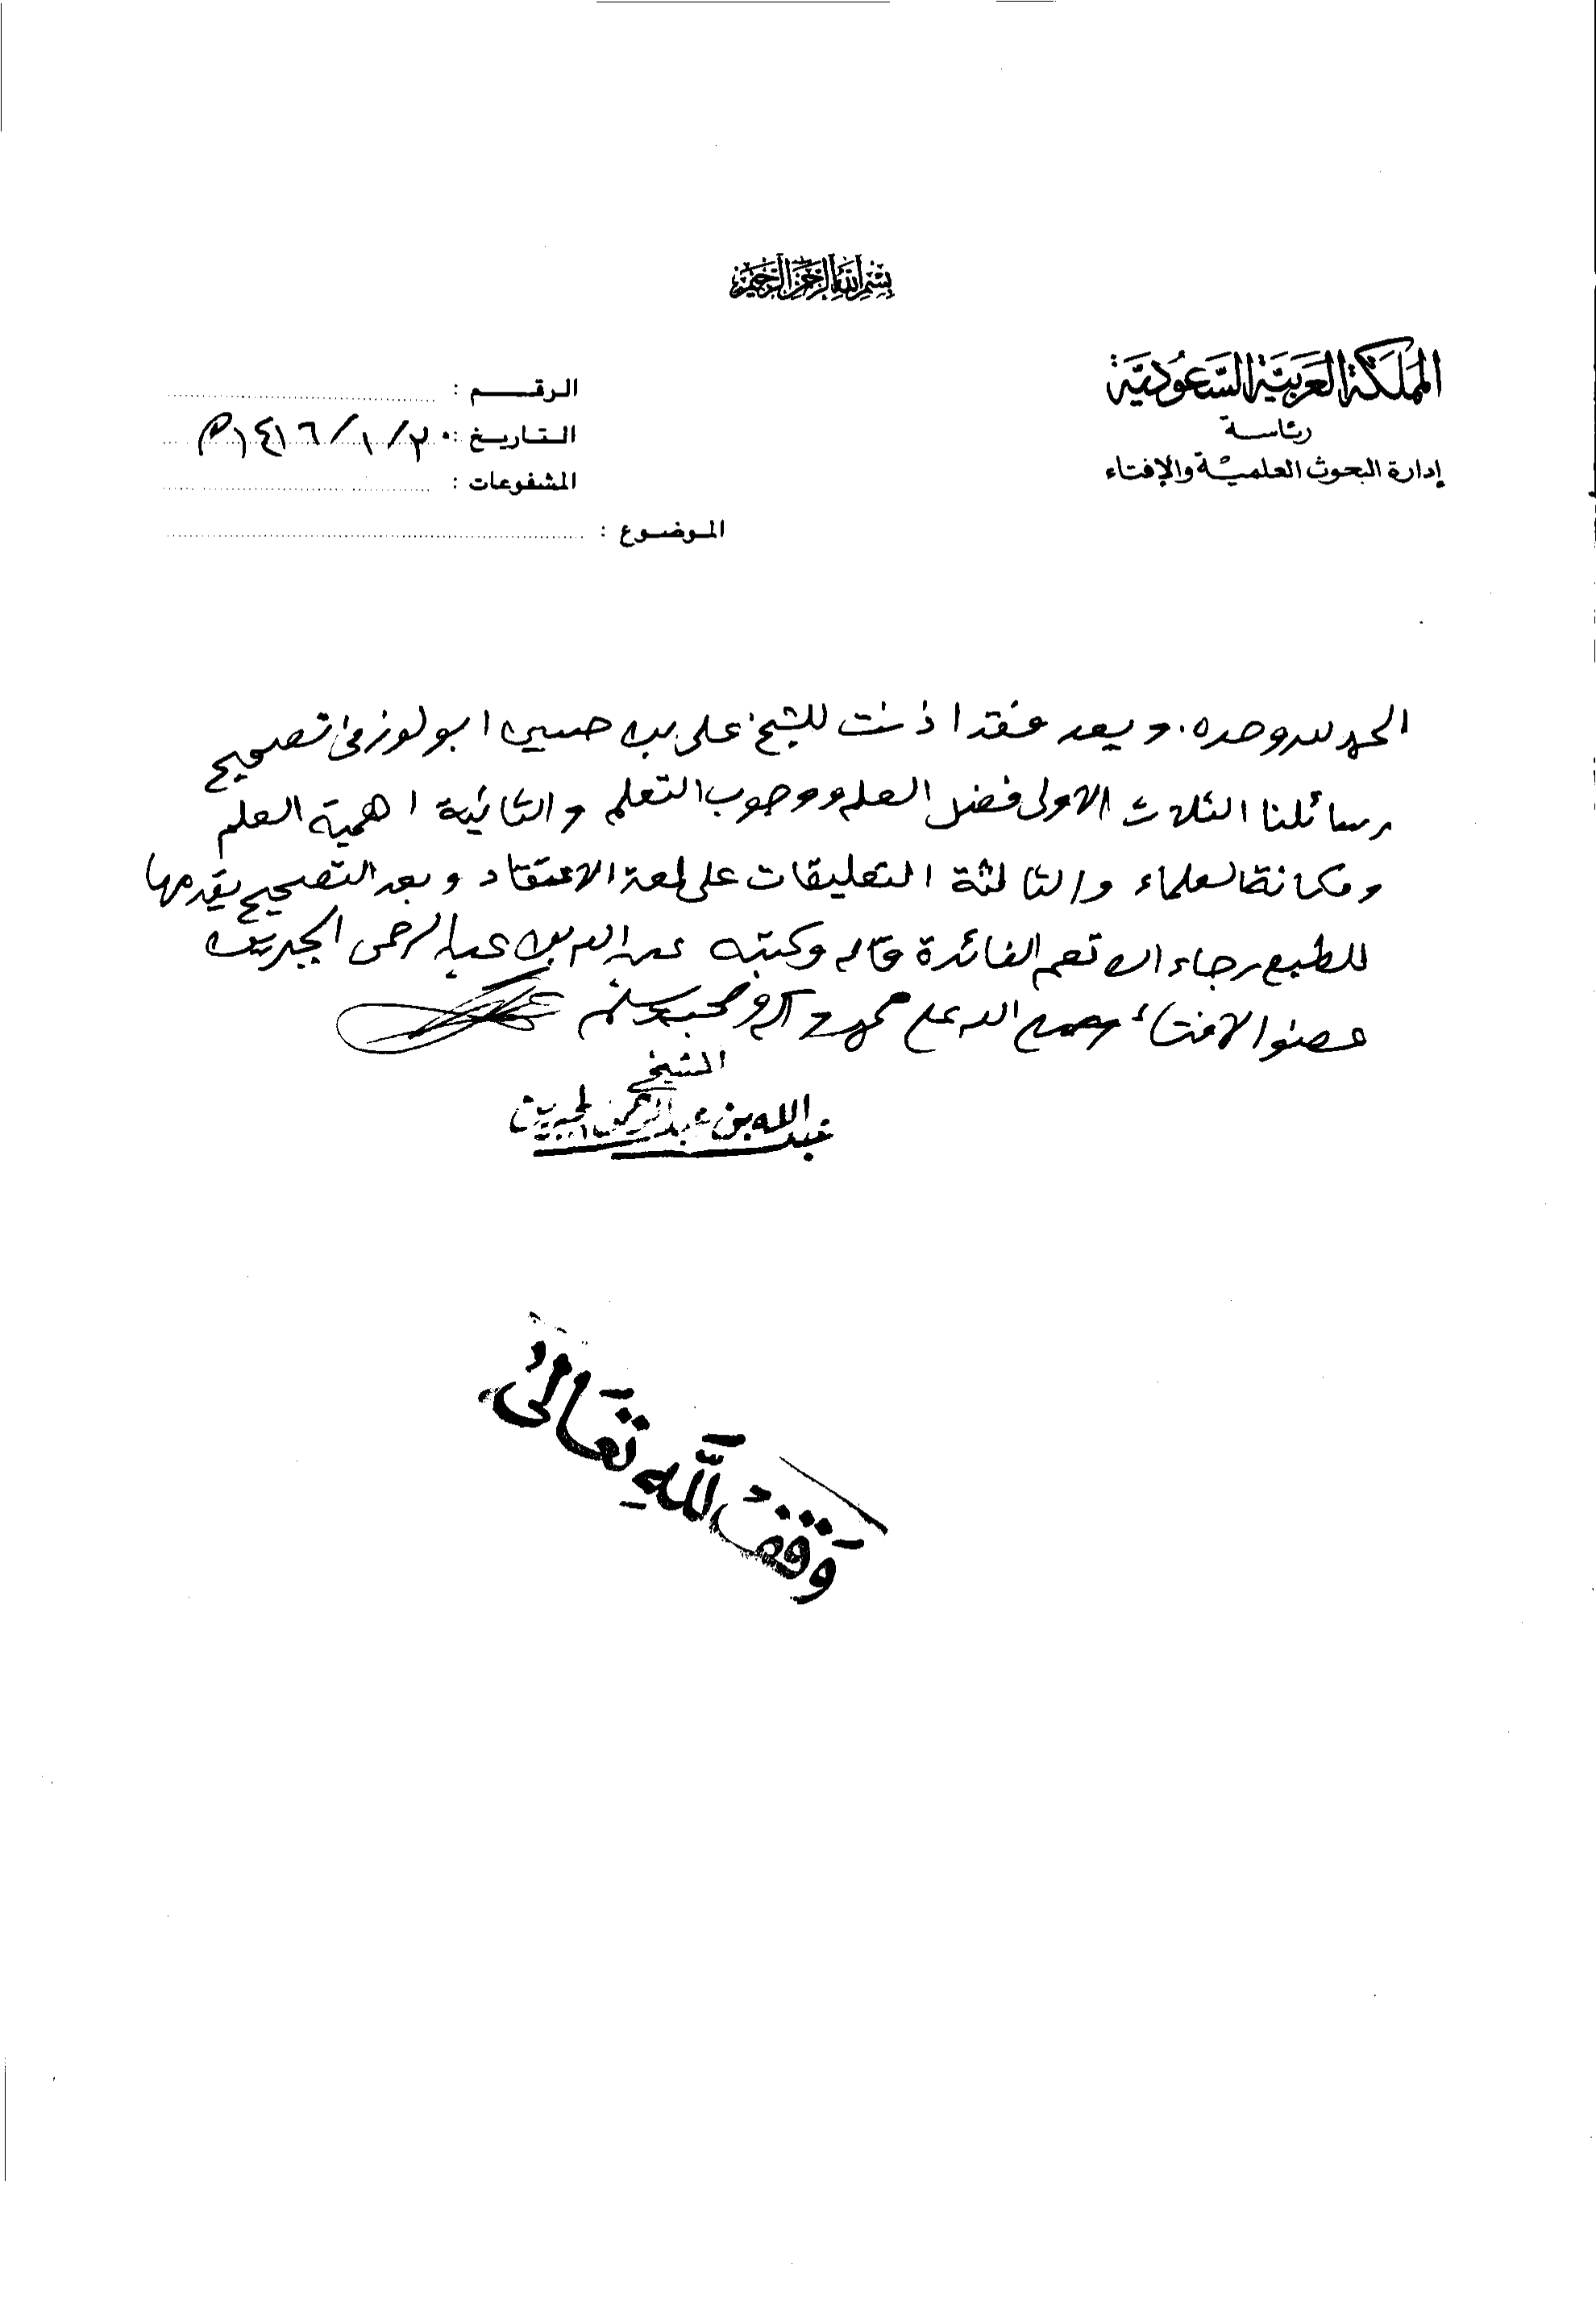 بسم الله الرحمن الرحيم
المملكة العربية السعودية
رئاسة
إدارة البحوث العلمية والإفتاء
الرقم :
التاريخ : ٢٠/١/١٤١٦هـ
المشفوعات :
الموضوع :
الحمد لله وحده . وبعد فقد اذنت للشيخ على بن حسين ابو لوز في تصحيح
رسائلنا الثلاث الاولى فضل العلم ووجوب التعلم والثانية اهمية العلم
ومكانة العلماء والثالثة التعليقات على لمعة الاعتقاد وبعد التصحيح يقدمها
للطبع رجاء ان تعم الفائدة قاله وكتبه عبد الله بن عبد الرحمن الجبرين
عضو الافتاء وصلى الله على محمد وآله وصحبه وسلم
الشيخ
عبد الله بن عبد الرحمن الجبرين
وَقْفٌ لِلَّهِ تَعَالَىٰ